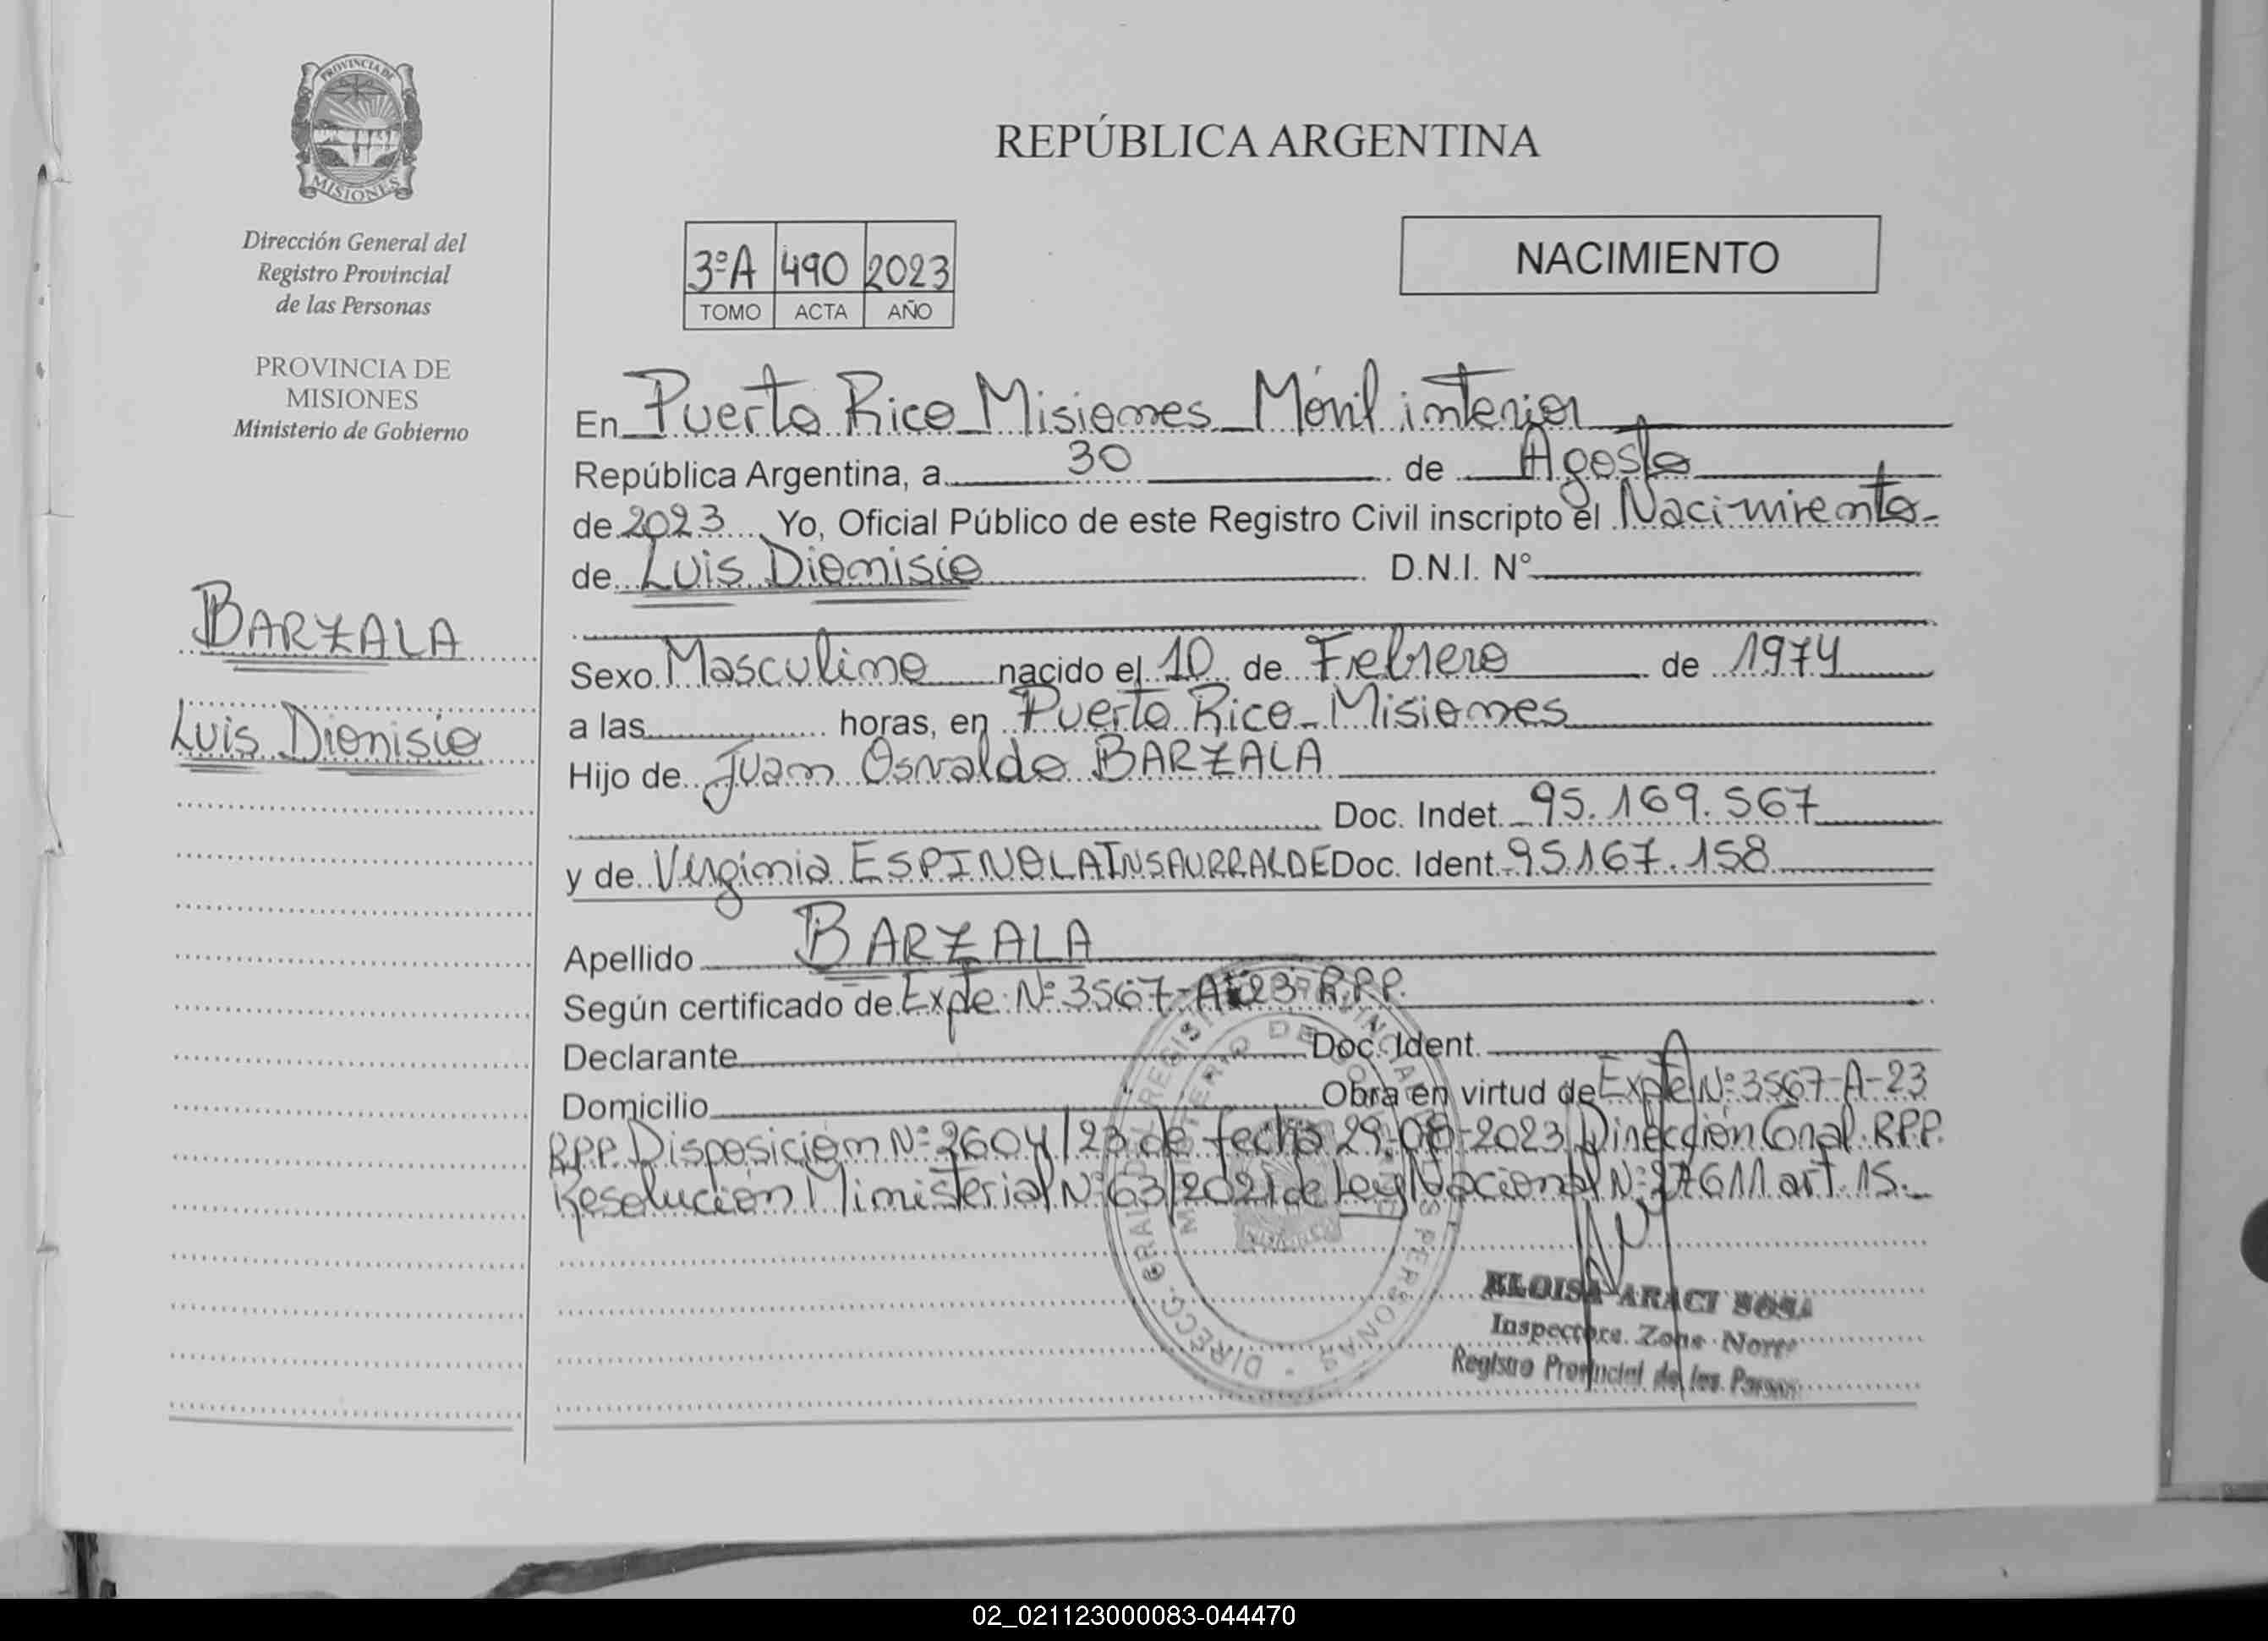 PROVINCIA DE
MISIONES
Dirección General del
Registro Provincial
de las Personas
PROVINCIA DE
MISIONES
Ministerio de Gobierno
BARZALA
Luis Dionisio
REPÚBLICA ARGENTINA
3ºA 490 2023
TOMO ACTA AÑO
NACIMIENTO
En Puerto Rico Misiones Móvil interior
República Argentina, a 30 de Agosto
de 2023 Yo, Oficial Público de este Registro Civil inscripto el Nacimiento
de Luis Dionisio D.N.I. N°
Sexo Masculino nacido el 10 de Febrero de 1974
a las horas, en Puerto Rico - Misiones
Hijo de Juan Osvaldo BARZALA
Doc. Indet. 95.169.567
y de Virginia ESPINOLA INSAURRALDE Doc. Ident. 95.167.158
Apellido BARZALA
Según certificado de Expte. Nº 3567-A-23 R.P.P.
Declarante Doc. Ident.
Domicilio Obra en virtud de Expte Nº 3567-A-23
R.P.P. Disposición Nº 2604/23 de fecha 29-08-2023 Dirección Gnal. R.P.P.
Resolución Ministerial Nº 63/2021 de Ley Nacional Nº 27611 art. 15.
ELOISA ARACI SOSA
Inspectora Zona Norte
Registro Provincial de las
02_021123000083-044470